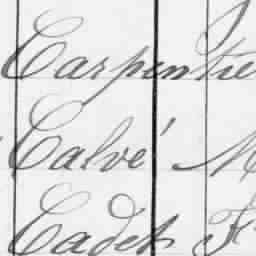 Carpentie
Calvé M
Cadet F